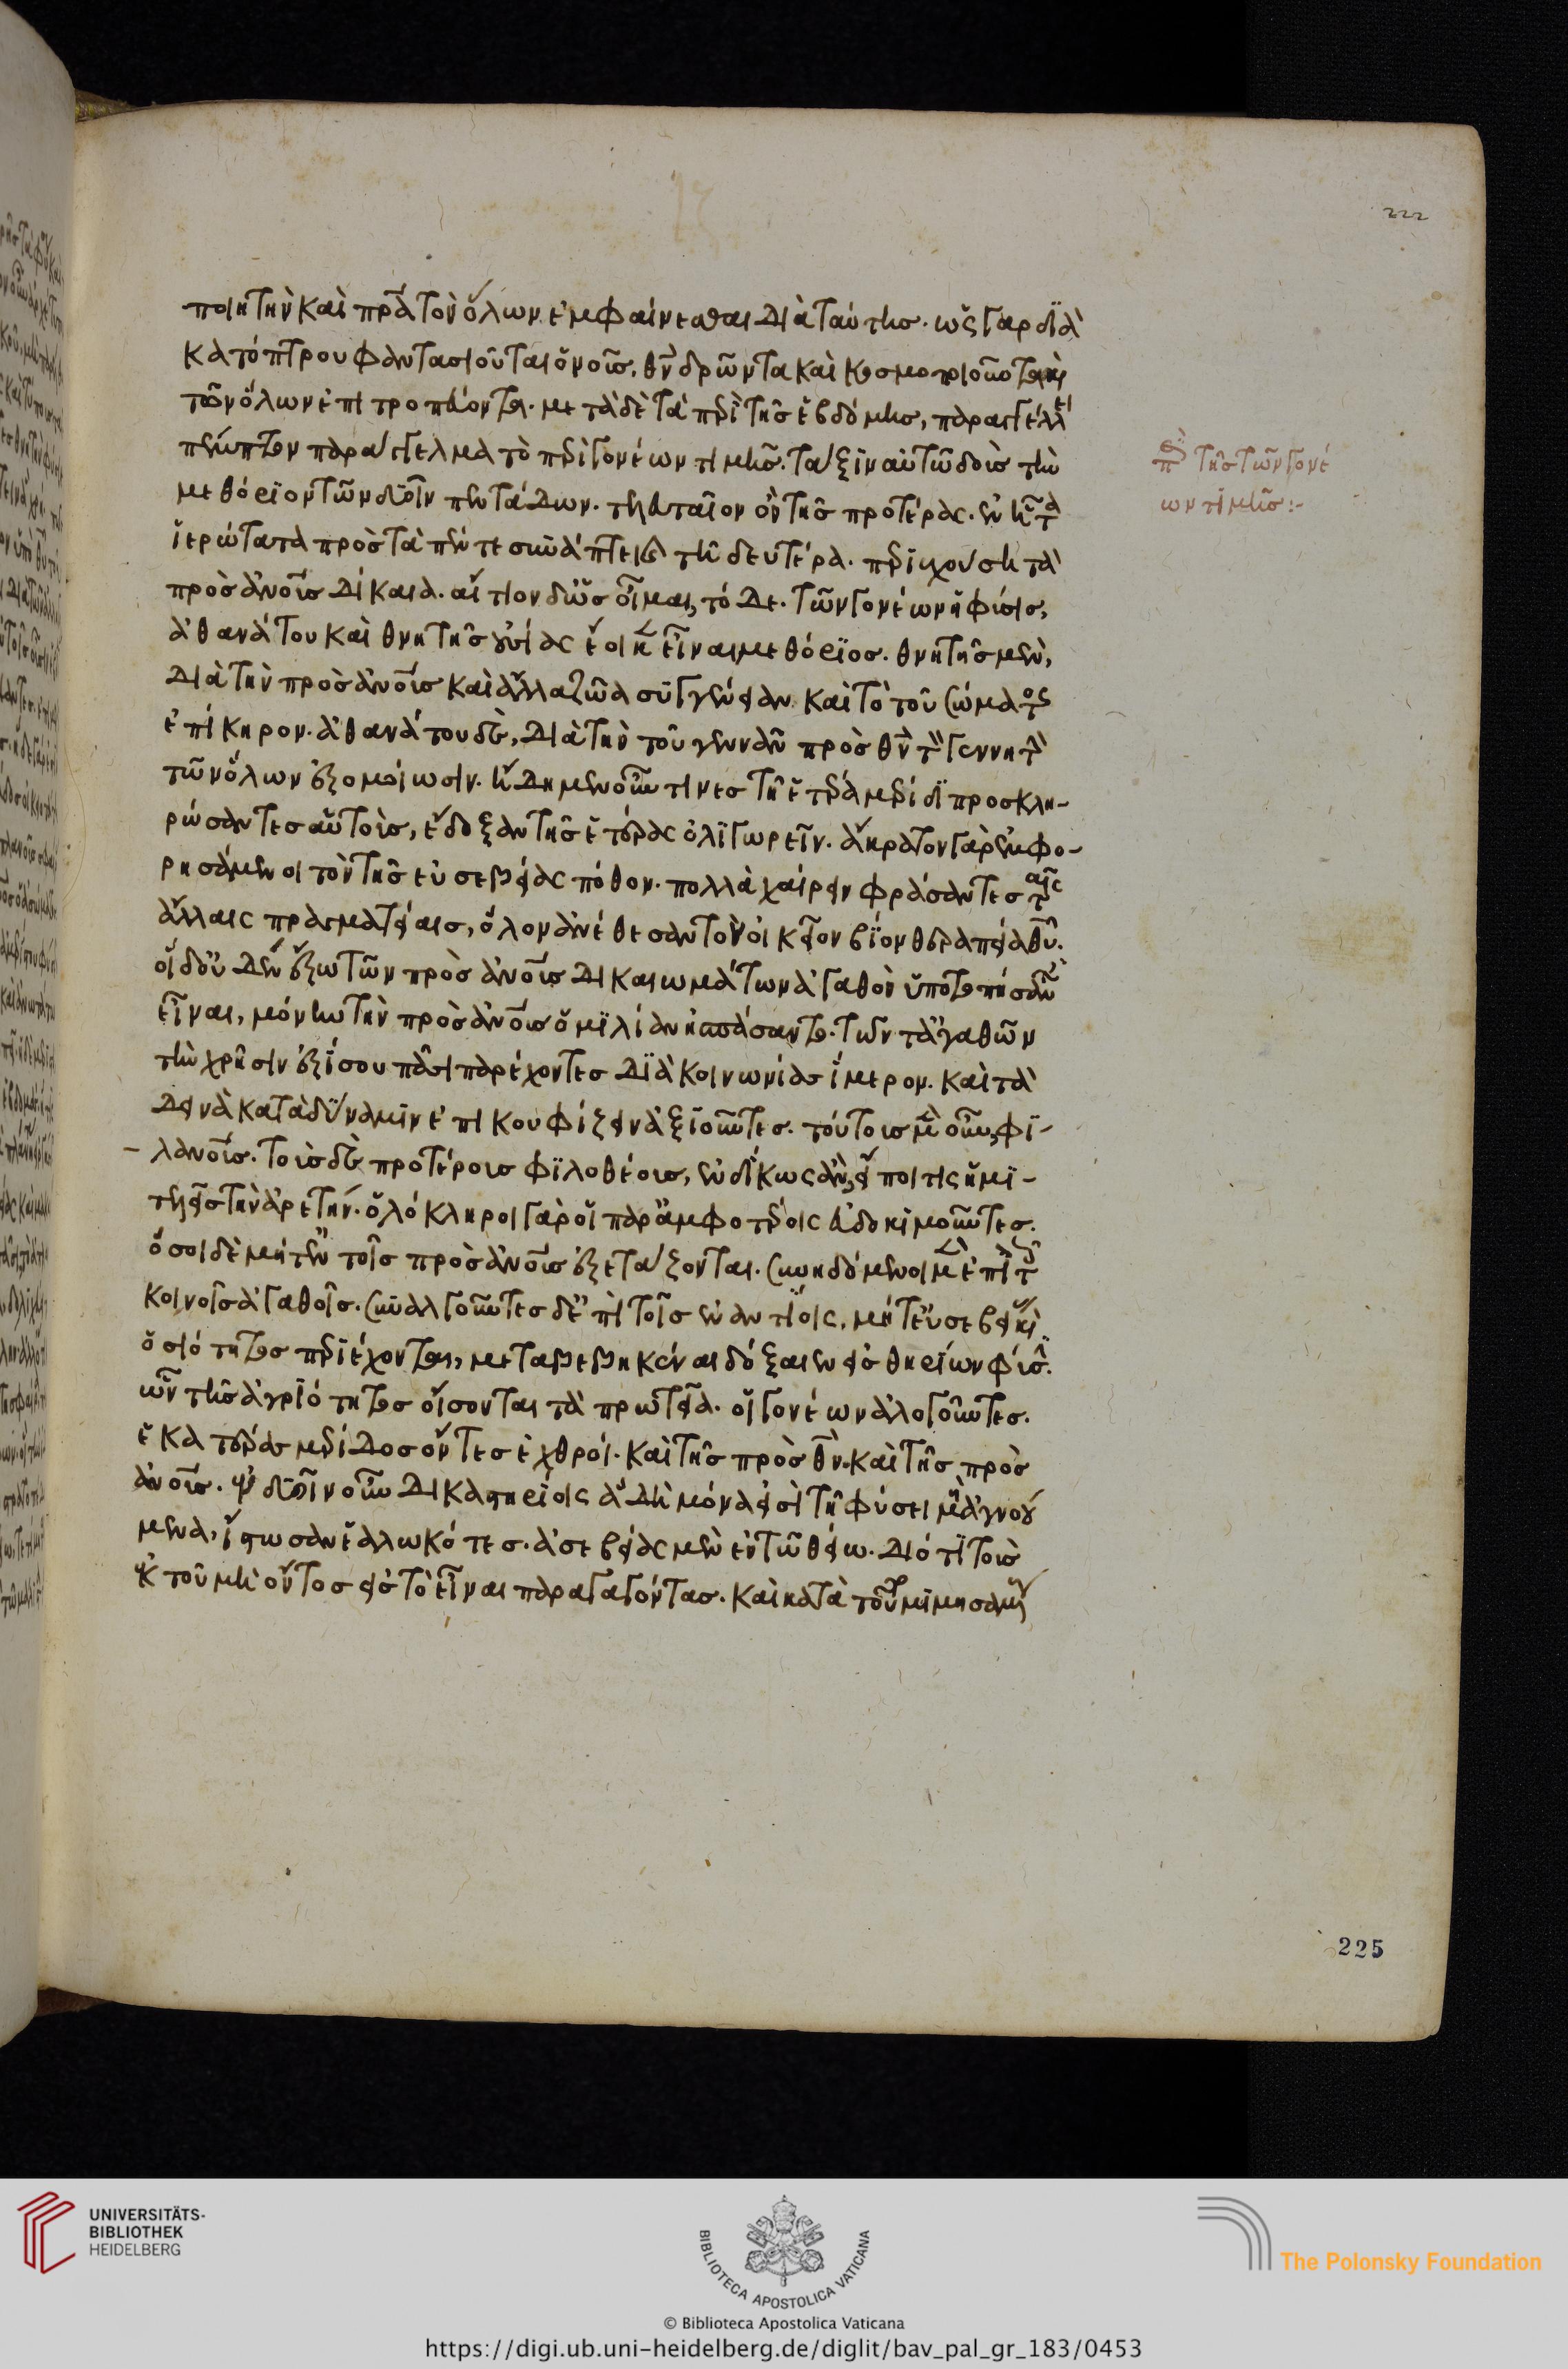 ποιητὴν καὶ πρᾶ τὸν ὅλων ἐμφαίνεσθαι διὰ ταύτης. ὡς γὰρ διὰ
κατόπτρου φαντασιοῦται ὁ νοῦς, θν δρῶντα καὶ κοσμοποιοῦντα καὶ
τῶν ὅλων ἐπιτροπεύοντα. μετὰ δὲ τὰ περὶ τῆς ἑβδόμης, παραγγέλλει
πέμπτον παράγγελμα τὸ περὶ γονέων τιμῆς. τάξιν αὐτῶ δοὺς τὴν
μεθόριον τῶν δυεῖν πεντάδων. τελευταῖον ὂν τῆς προτέρας. ἐν ᾗ τὰ
ἱερώτατα πρὸς τὰ πέντε συνάπτει καὶ τῇ δευτέρα. περιεχούση τὰ
πρὸς ἀνους δίκαια. αἴτιον δ' ὡς οἶμαι, τόδε. τῶν γονέων ἡ φύσις,
ἀθανάτου καὶ θνητῆς οὐσίας ἔοικεν εἶναι μεθόριος. θνητῆς μὲν,
διὰ τὴν πρὸς ἀνους καὶ ἄλλα ζῶα συγγένειαν καὶ τὸ τοῦ σώματος
ἐπίκηρον. ἀθανάτου δὲ, διὰ τὴν τοῦ γεννᾶν πρὸς θν τὸν γεννητὴν
τῶν ὅλων ἐξομοίωσιν. ἤδη μὲν οὖν τινες τῇ ἑτέρα μερίδι προσκλη-
ρώσαντες αὑτοὺς, ἔδοξαν τῆς ἑτέρας ὀλιγωρεῖν. ἄκρατον γὰρ ἐμφο-
ρησάμενοι τὸν τῆς εὐσεβείας πόθον. πολλὰ χαίρειν φράσαντες ταῖς
ἄλλαις πραγματείαις, ὅλον ἀνέθεσαν τὸν οἰκεῖον βίον θεραπεία θυ.
οἱ δ' οὐδὲν ἔξω τῶν πρὸς ἀνους δικαιωμάτων ἀγαθὸν ὑποτοπήσαντες
εἶναι, μόνην τὴν πρὸς ἀνους ὁμιλίαν ἠσπάσαντο. τῶν τἀγαθῶν
τὴν χρῆσιν ἐξίσου πᾶσι παρέχοντες διὰ κοινωνίας ἵμερον. καὶ τὰ
δεινὰ κατὰ δύναμιν ἐπικουφίζειν ἀξιοῦντες. τούτους μὲν οὖν, φι-
λανους. τοὺς δὲ προτέρους φιλοθέους, ἐνδίκως ἂν, εἴποι τις ἡμι-
τελεῖς τὴν ἀρετήν. ὁλόκληροι γὰρ οἱ παρ' ἀμφοτέροις εὐδοκιμοῦντες.
ὅσοι δὲ μήτ' ἐν τοῖς πρὸς ἀνους ἐξετάζονται. συνηδόμενοι μὲν ἐπὶ τοῖς
κοινοῖς ἀγαθοῖς. συναλγοῦντες δ' ἐπὶ τοῖς ἐναντίοις, μήτ' εὐσεβείας καὶ
ὁσιότητος περιέχονται, μεταβεβηκέναι δόξαιεν εἰς θηρίων φύσιν.
ὧν τῆς ἀγριότητος οἴσονται τὰ πρωτεῖα. οἱ γονέων ἀλογοῦντες.
ἑκατέρας μερίδος ὄντες ἐχθροί. καὶ τῆς πρὸς θν. καὶ τῆς πρὸς
ἀνους. ἐν δυσὶν οὖν δικαστηρίοις ἃ δὴ μόνα ἐστὶ τῇ φύσει μὴ ἀγνοού
μενα, ἴστωσαν ἑαλωκότες. ἀσεβείας μὲν ἐν τῶ θείω. διότι τοὺς
ἐκ τοῦ μὴ ὄντος εἰς τὸ εἶναι παραγαγόντας. καὶ κατὰ τοῦτο μιμησαμένους
περὶ τῆς τῶν γονέ
ων τιμῆς:-
222
225
UNIVERSITÄTS-
BIBLIOTHEK
HEIDELBERG
BIBLIOTECA APOSTOLICA VATICANA
The Polonsky Foundation
© Biblioteca Apostolica Vaticana
https://digi.ub.uni-heidelberg.de/diglit/bav_pal_gr_183/0453